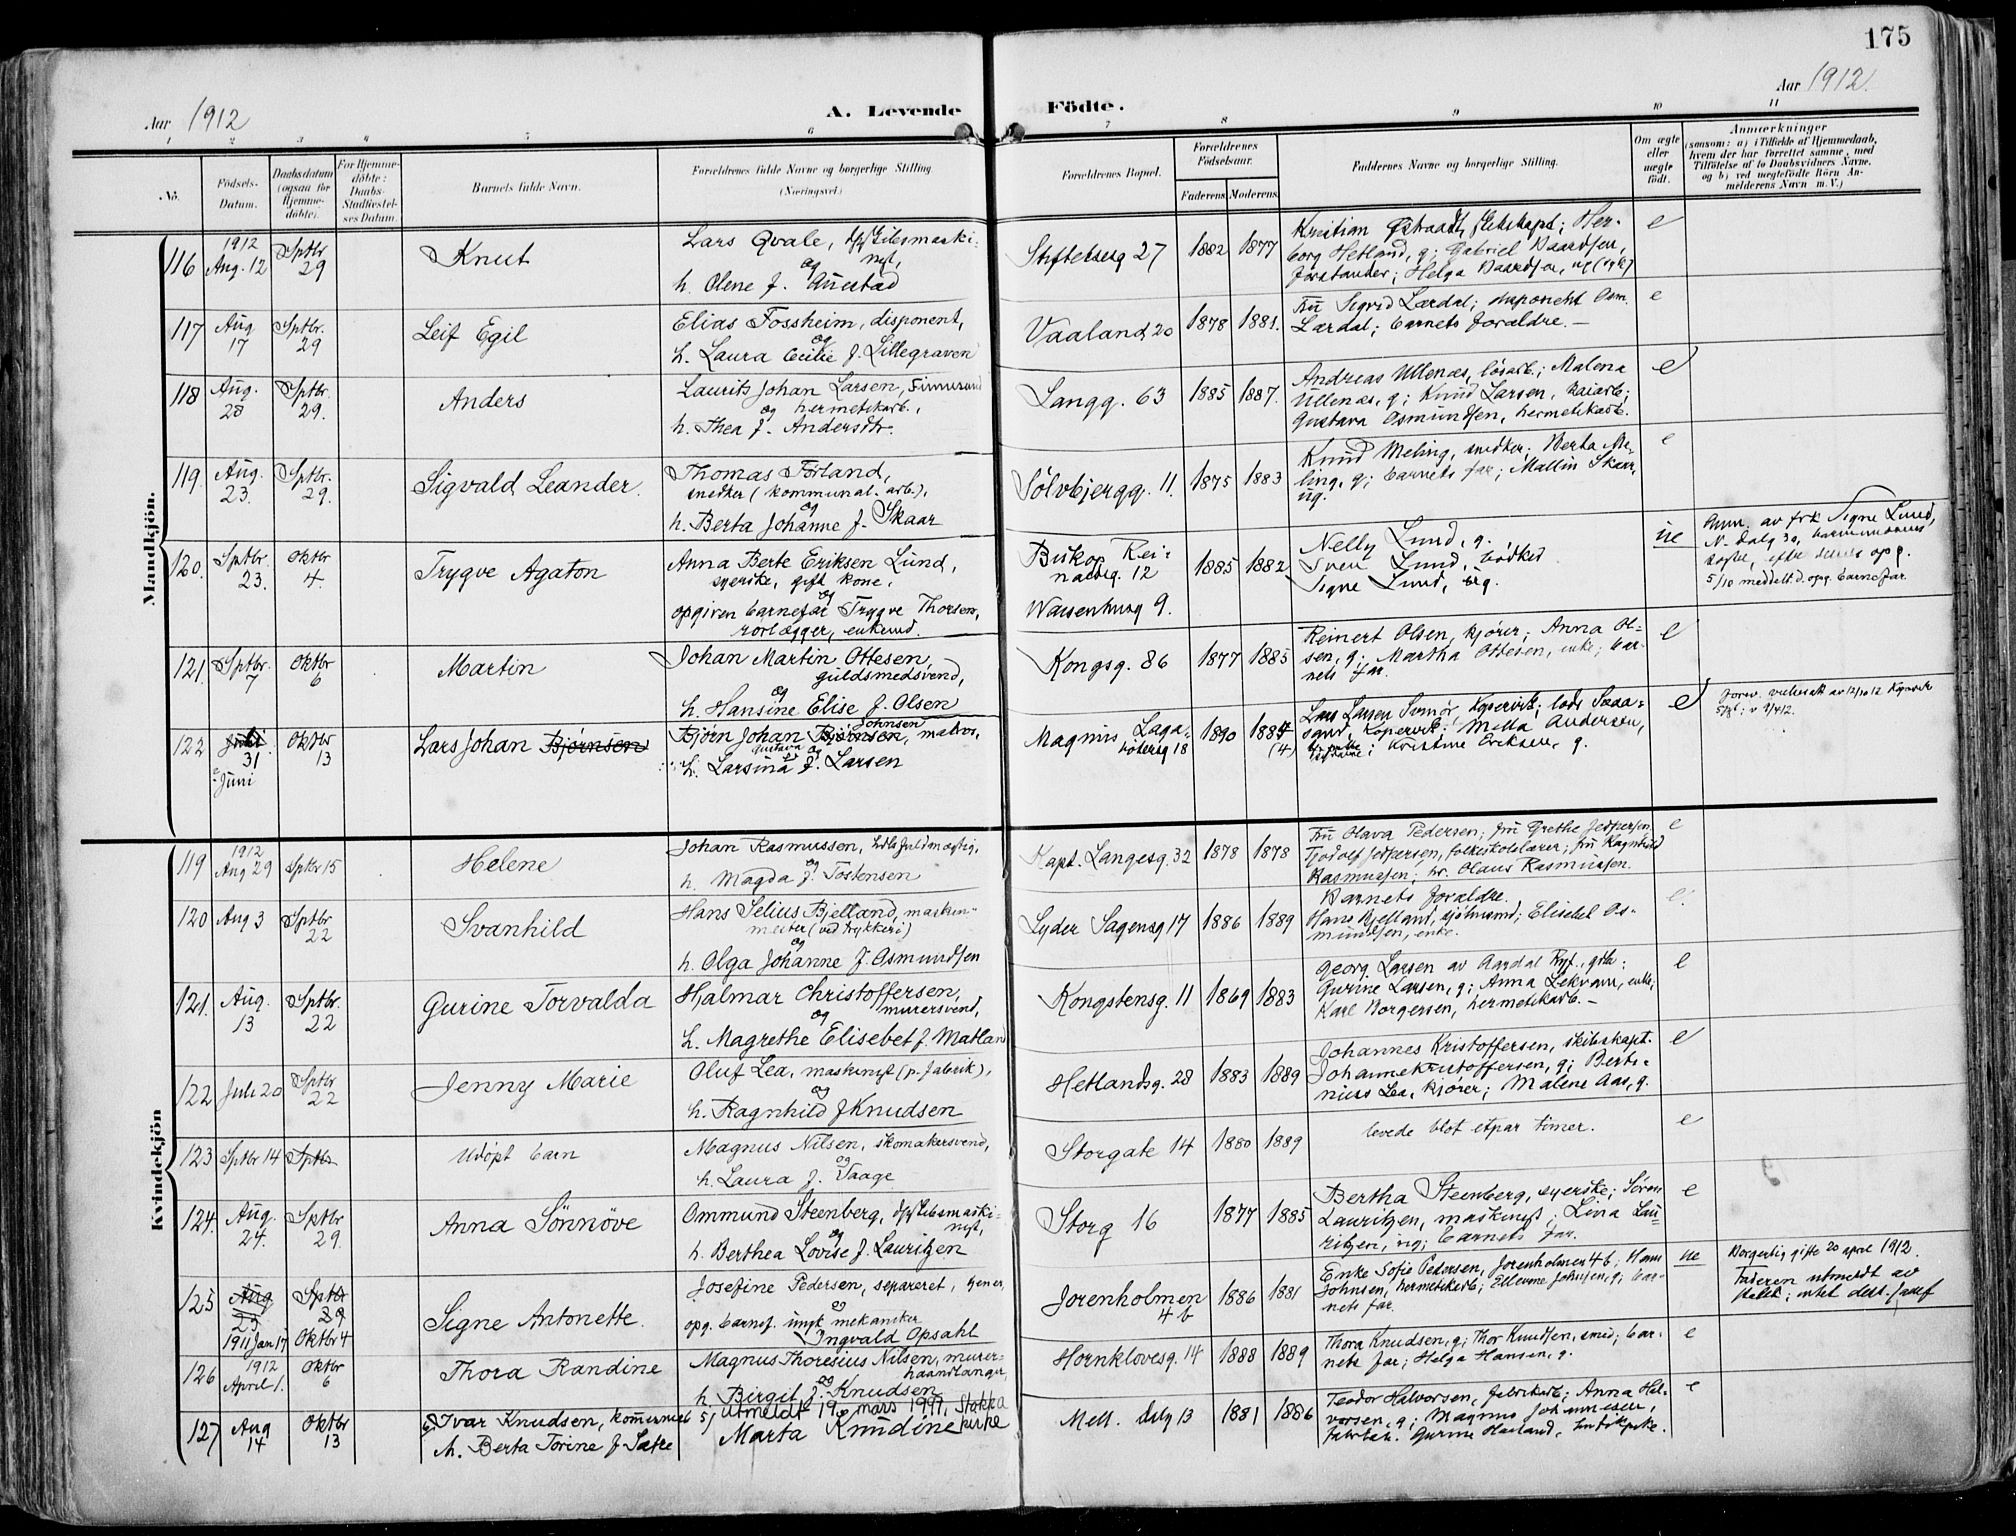 175
Aar 1912
A. Levende Födte.
Aar 1912.
1 2 3 4 5 6 7 8 9 10 11
No.
Födsels-Datum.
Daabsdatum (ogsaa for Hjemme-döbte).
For Hjemme-döbte: Daabs-Stadfæstel-ses Datum.
Barnets fulde Navn.
Forældrenes fulde Navne og borgerlige Stilling (Næringsvei.)
Forældrenes Bopæl.
Forældrenes Födselsaar.
Faderens Moderens
Faddernes Navne og borgerlige Stilling.
Om ægte eller uægte födt.
Anmærkninger
(saasom: a) i Tilfælde af Hjemmedaab, hvem der har forrettet samme, med Tilföielse af to Daabsvidners Navne, og b) ved uægtefödte Börn An-melderens Navn m. V.)
Mandkjön.
116 1912 Aug. 12 Sptbr 29 Knut
Lars Qvale,
og
h. Olene f. Auestad
Stiftelsesg 27 1882 1877
Kristian
borg Hetland, g; Gabriel Baardsen,
forstander; Helga Baardsen, ug
e
117 Aug 17 Sptbr. 29 Leif Egil
Elias Fossheim, disponent,
og
h. Laura Cecilie f. Lillegraven
Vaaland 20 1878 1881.
Fru Sigrid Lærdal; disponent Osm.
Lærdal; barnets forældre. —
e
118 Aug. 28 Sptbr. 29. Anders
Laurits Johan Larsen,
og hermetikarb.,
h. Thea f. Andersdtr.
Langg. 63 1885 1887.
Andreas Ullenæs, løsarb.; Malena
Ullenæs, g; Knud Larsen, kaiarb;
Gustava Osmundsen, hermetikarb.
e
119 Aug. 23. Sptbr. 29. Sigvald Leander.
Thomas Førland,
snedker (kommunal. arb.),
og
h. Berta Johanne f. Skaar
Sølvbjergg. 11. 1875 1883
Knud Meling, snedker; Berta Me-
ling, g; barnets far; Mallin Skaar,
ug.
e
120. Sptbr. 23. Oktbr 4. Trygve Agaton
Anna Berte Eriksen Lund,
syerske, gift kone,
og
opgiven barnefar Trygve Thorsen,
rørlægger, enkemd.
Biskop Rei-
naldsg. 12
Waisenhusg 9.
1885 1882
Nelly Lund, g.
Sven Lund, bødker
Signe Lund, ug.
ue
Anm. av frk Signe Lund,
N. Dalg 30, barnemorens
5/10 meddelt d. opg. barnefar.
121 Sptbr. 7 Oktbr 6 Martin
Johan Martin Ottesen,
guldsmedsvend,
og
h. Hansine Elise f. Olsen
Kongsg. 86 1877 1885
Reinert Olsen, kjører; Anna Ol-
sen, g; Martha Ottesen, enke; bar-
nets far.
e
122 31 Juni Oktbr 13 Lars Johan Bjørnsen
Johnsen
Bjørn Johan Bjørnsen, matros,
Gustava og
h. Larsina f. Larsen
Magnus Laga-
bøtersg 18
1890 1884
(4)
Lars Larsen Kopervik; lods
Kopervik; Milla Andersen,
Kristine Eriksen, g.
e
Kvindekjön
119 1912 Aug 29 Sptbr 15 Helene
Johan Rasmussen,
og
h. Magda f. Tostensen
Kapt. Langesg. 32 1878 1878
Fru Olava Pedersen; fru Grethe Jespersen
Tjodolf Jespersen, folkeskolelærer; fru Ragnhild
Rasmussen; hr. Olaus Rasmussen.
e
120 Aug 3 Sptbr. 22 Svanhild
Hans Selius Bjelland, maskin-
mester (ved trykkeri)
og
h. Olga Johanne f. Osmundsen
Lyder Sagensg 17 1886 1889
Barnets forældre.
Hans Bjelland, sjømand; Elisebet Os-
mundsen, enke.
e.
121. Aug. 13 Sptbr. 22 Gurine Torvalda
Hjalmar Christoffersen,
murersvend,
og
h. Magrethe Elisebet f. Matland
Kongstensg. 11 1869 1883
Georg Larsen av Aardal Ryf., gbr.;
Gurine Larsen, g; Anna Lekvam, enke;
Karl Borgersen, hermetikarb. —
e
122 Juli 20 Sptbr 22 Jenny Marie
Oluf Lea, maskinist (p. fabrik),
og
h. Ragnhild f Knudsen
Hetlandsg. 28 1883 1889
Johannes Kristoffersen, skibskapt.
Johanne Kristoffersen, g; Berti-
nius Lea, kjører; Malene Aas, g.
e
123 Sptbr 14 Sptbr Udøpt barn
Magnus Nilsen, skomakersvend,
og
h. Laura f. Vaage
Storgate 14 1880 1889
levede blot etpar timer.
e
124. Aug. 24. Sptbr 29. Anna Sönnöve
Ommund Steenberg,
og
h. Berthea Lovise f. Lauritzen
Storg 16 1877 1885
Bertha Steenberg, syerske; Søren
Lauritzen, maskinist; Lina Lau-
ritzen, ug; barnets far.
e
125 Aug 25 Sptbr 29 1911 Jan 17 Oktbr 4 Signe Antonette.
Josefine Pedersen, separeret,
og
opg. barnef. ungk mekaniker
Ingvald Opsahl
Jorenholmen
4b
1886 1881
Enke Sofie Pedersen, Jorenholmen 4b; Hans
Johnsen, hermetikarb; Ellevine Johnsen, g; bar-
nets far.
ue
Borgerlig gifte 20 april 1912.
Faderen utmeldt av
126 1912 April 1. Oktbr 6 Thora Randine
Magnus Thoresius Nilsen, murer-
haandlanger,
og
h. Birgit f. Knudsen
Hornklovesg. 14 1888 1889
Thora Knudsen, g; Thor Knudsen, smed; bar-
nets far; Helga Hansen, g.
e
127 Aug 14 Oktbr 13
Ivar Knudsen,
h. Berta Torine f Sætre
utmeldt 19 mars 1997, Stokka
kirke
Marta Knudine
Mell. Dalg 13 1881 1886
Teodor Halvorsen, fabrikarb; Anna Hal-
vorsen, g; Magnus Johannesen,
Gurine Hauland,
e